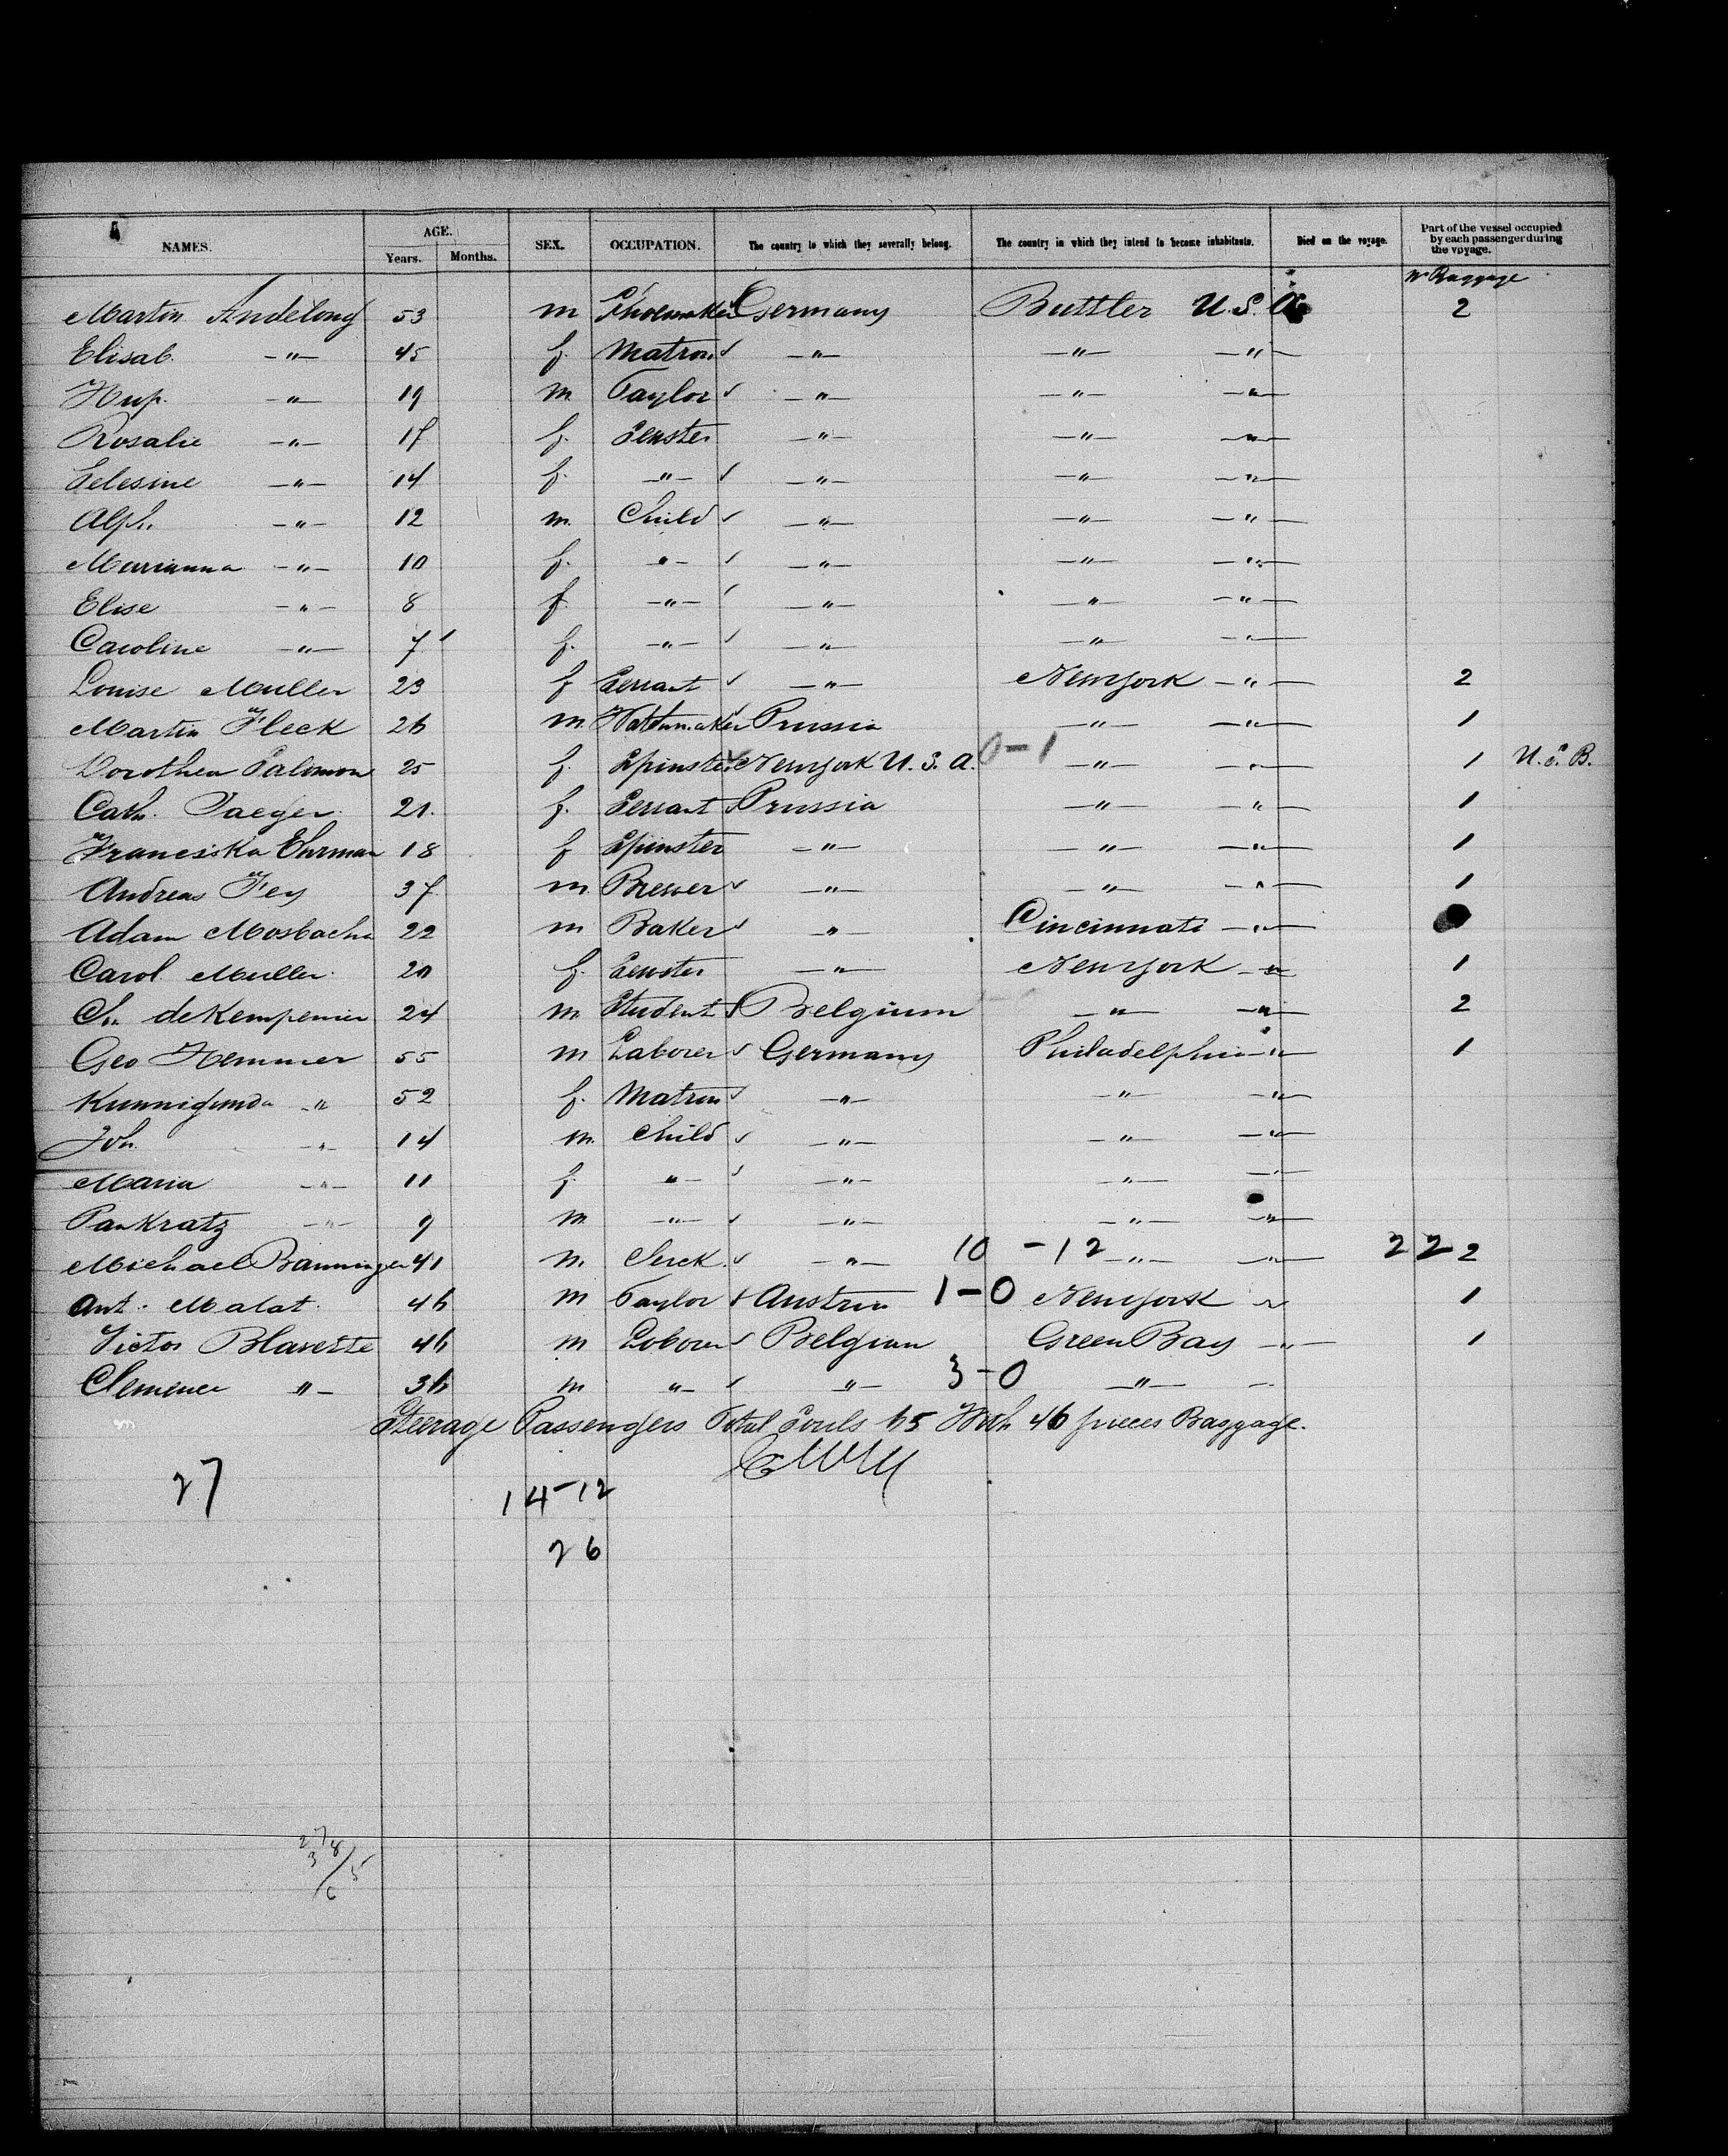 NAMES. AGE. Years. Months. SEX. OCCUPATION. The country to which they severally belong. The country in which they intend to become inhabitants. Died on the voyage. Part of the vessel occupied by each passenger during the voyage.
Nr Baggage
Martin Andelong 53 m Shoemaker Germany Buttler U.S.A. 2
Elisab. -"- 45 f. Matron -"- -"- -"-
Hup. -"- 19 m Taylor -"- -"- -"-
Rosalie -"- 17 f. -"- -"- -"-
Selesine -"- 14 f. -"- -"- -"- -"-
Alph. -"- 12 m. Child -"- -"- -"-
Marianna -"- 10 f. -"- -"- -"- -"-
Elise -"- 8 f -"- -"- -"- -"-
Caroline -"- 7 f. -"- -"- -"- -"-
Louise Muller 23 f Servant -"- New York -"- 2
Martin Fleck 26 m. Watchmaker Prussia -"- -"- 1
Dorothea Salomon 25 f. Spinster New York U.S.A. 0-1 -"- -"- 1 U.S.B.
Cath. Jaeger 21. f. Servant Prussia -"- -"- 1
Franciska Ehrman 18 f Spinster -"- -"- -"- 1
Andreas Fey 37 m. Brewer -"- -"- -"- 1
Adam Mosbacher 22 m Baker -"- Cincinnati -"-
Carol. Muller 20 f. -"- New York -"- 1
Ch. de Kempenier 24 m. Student Belgium -"- -"- 2
Geo Hemmer 55 m Laborer Germany Philadelphia -"- 1
Kunnigunda -"- 52 f. Matron -"- -"- -"-
Joh. -"- 14 m. Child -"- -"- -"-
Maria -"- 11 f. -"- -"- -"- -"-
Pankratz -"- 9 m. -"- -"- -"- -"-
Michael Banninger 41 m. Clerck -"- 10 -12 -"- -"- 2 2 2
Ant. Malat. 46 m Taylor Austria 1-0 New York -"- 1
Victor Blavette 46 m Loborer Belgian Green Bay -"- 1
Clemence -"- 36 m -"- -"- 3-0 -"- -"-
Steerage Passengers Total Souls 65 With 46 pieces Baggage.
27
14-12
26